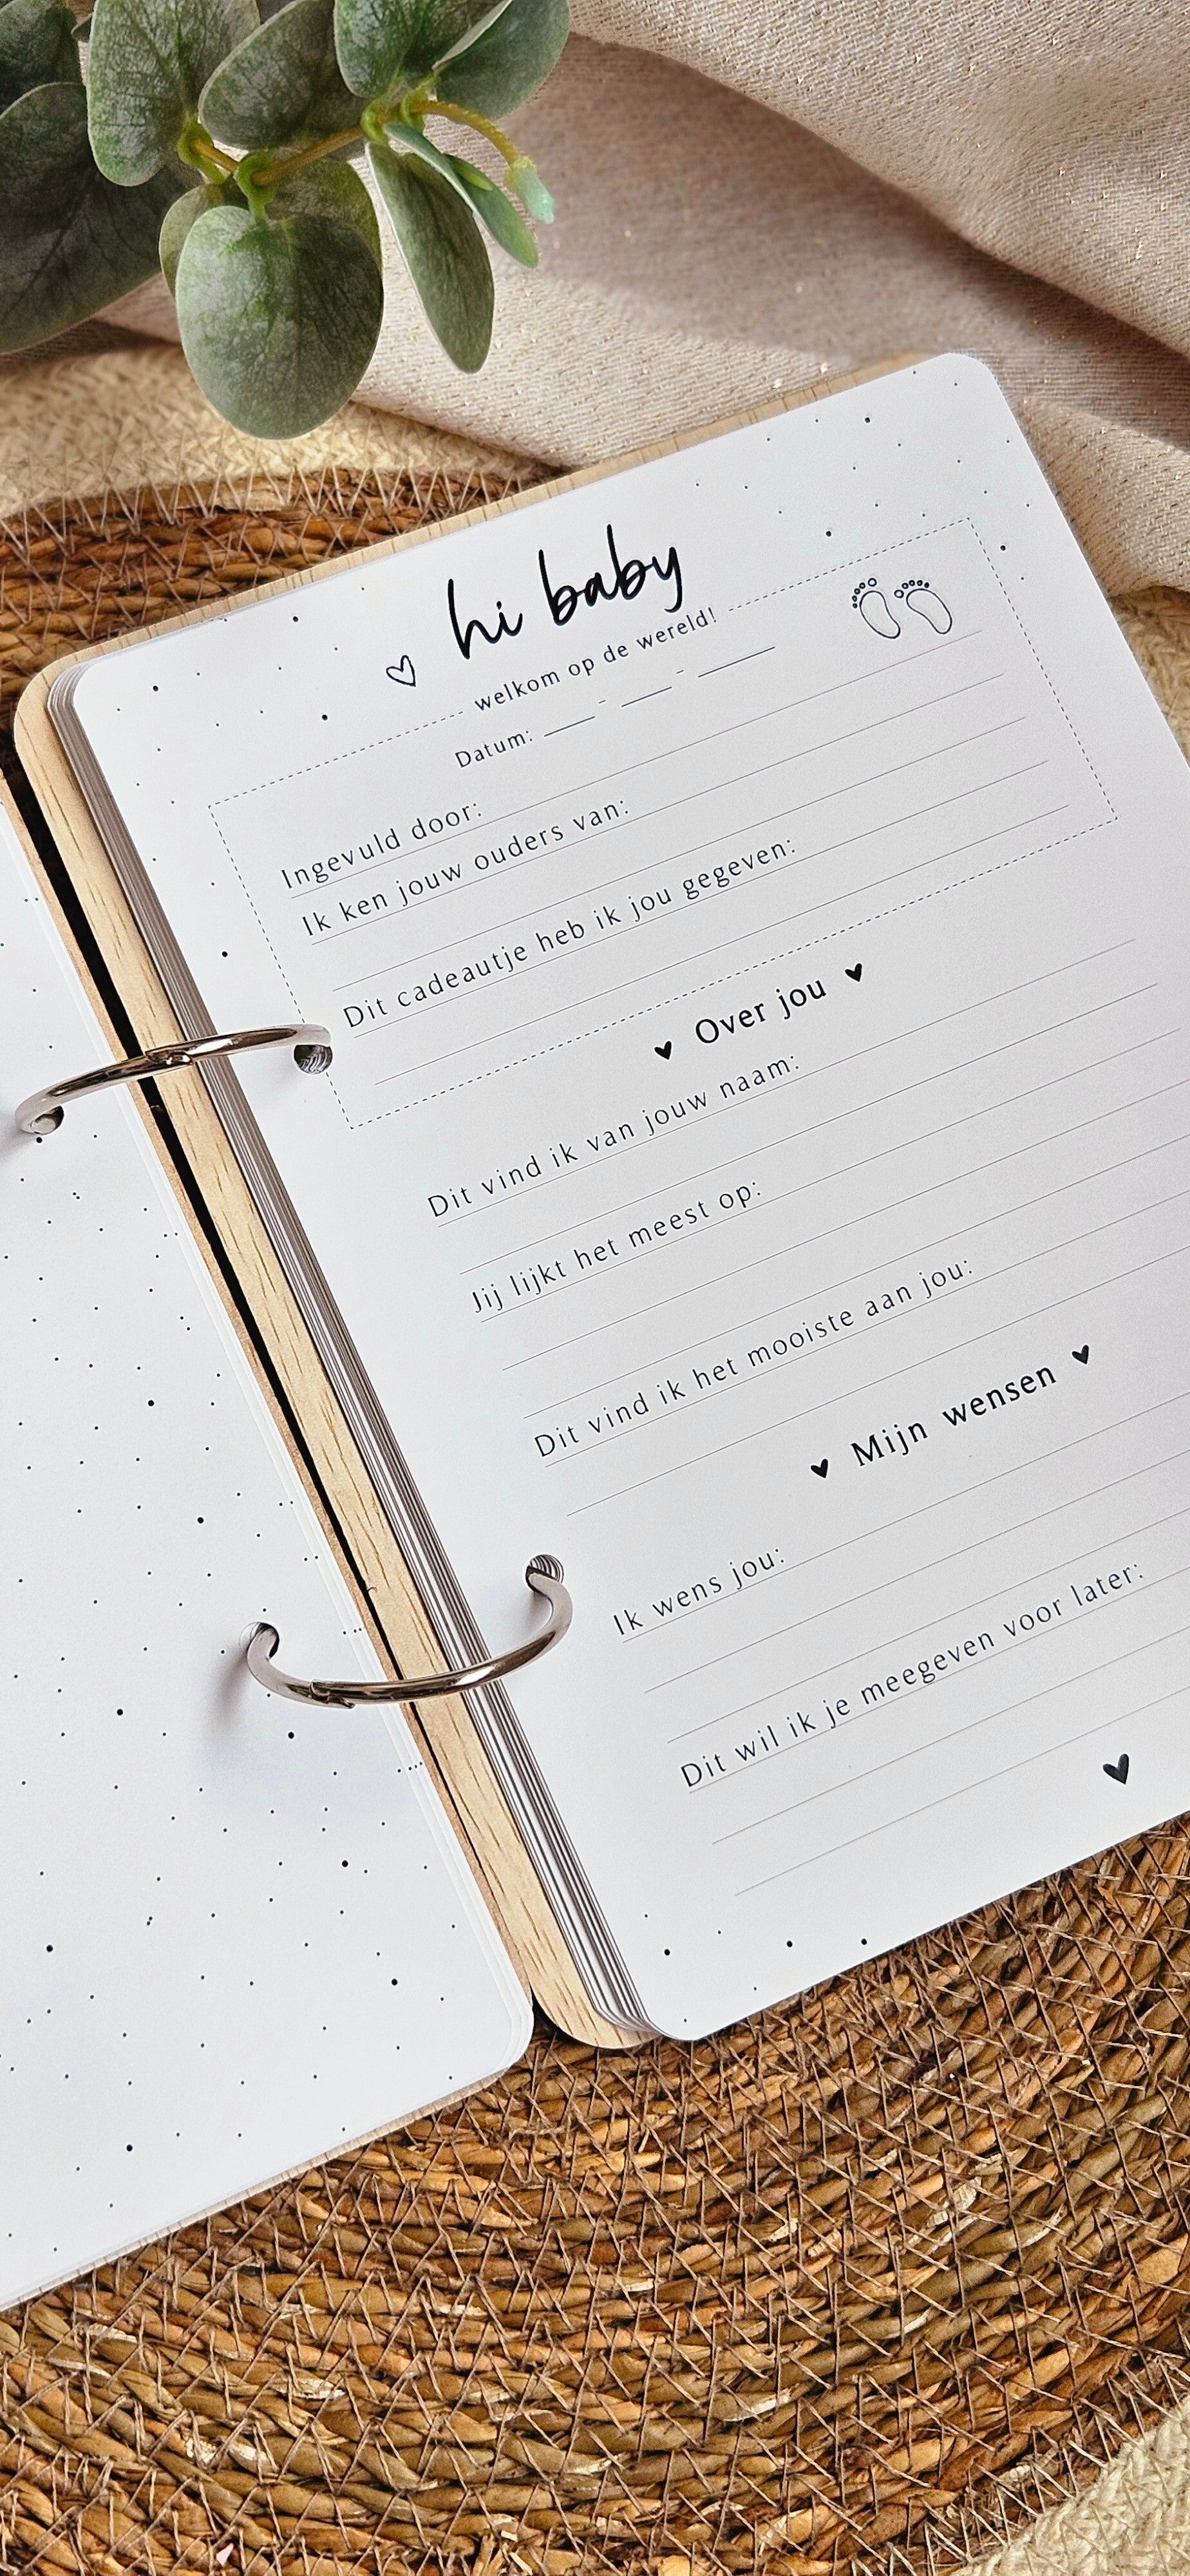 hi baby
welkom op de wereld!
Datum: ___ - ___ - ___
Ingevuld door:
Ik ken jouw ouders van:
Dit cadeautje heb ik jou gegeven:
Over jou
Dit vind ik van jouw naam:
Jij lijkt het meest op:
Dit vind ik het mooiste aan jou:
Mijn wensen
Ik wens jou:
Dit wil ik je meegeven voor later: